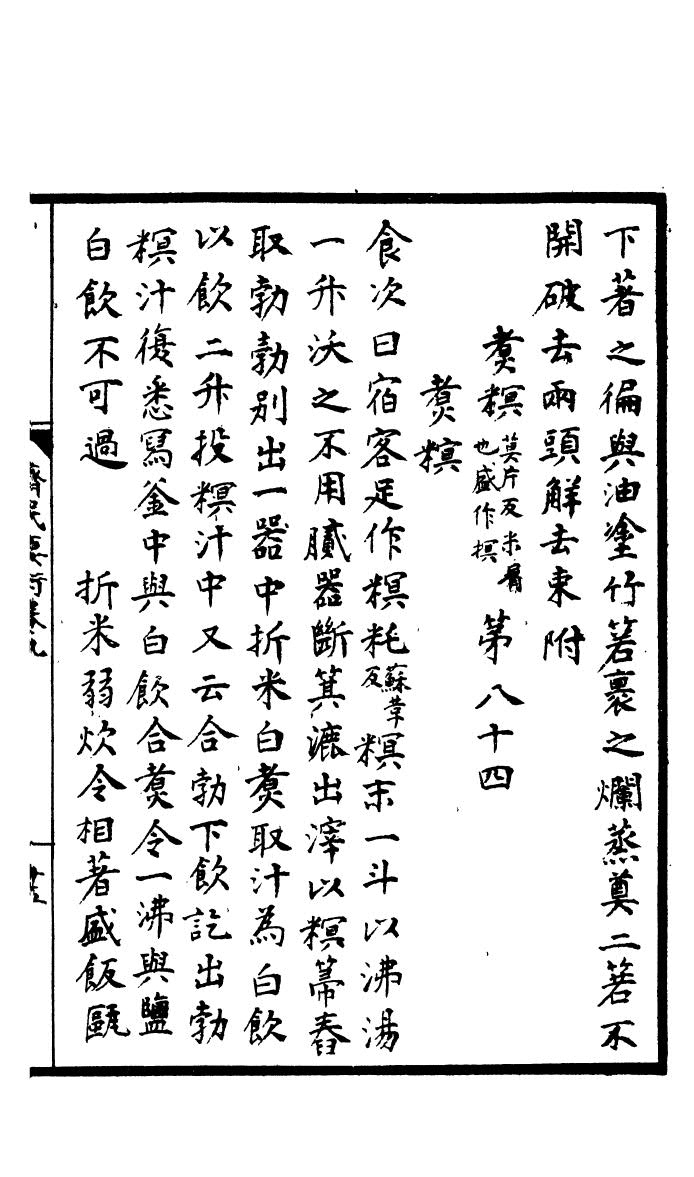 下著之徧與油塗竹箬裹之爛蒸奠二箬不
開破去兩頭解去束附
煑䊳莫片反米屑也盛作㨠第八十四
煑䊳
食次曰宿客足作䊳粍蘇革反䊳末一斗以沸湯
一升沃之不用膩器斷箕漉出滓以䊳箒舂
取勃勃別出一器中折米白煑取汁為白飲
以飲二升投䊳汁中又云合勃下飲訖出勃
䊳汁復悉寫釜中與白飲合煑令一沸與鹽
白飲不可過　折米弱炊令相著盛飯甌
齊民要術卷九